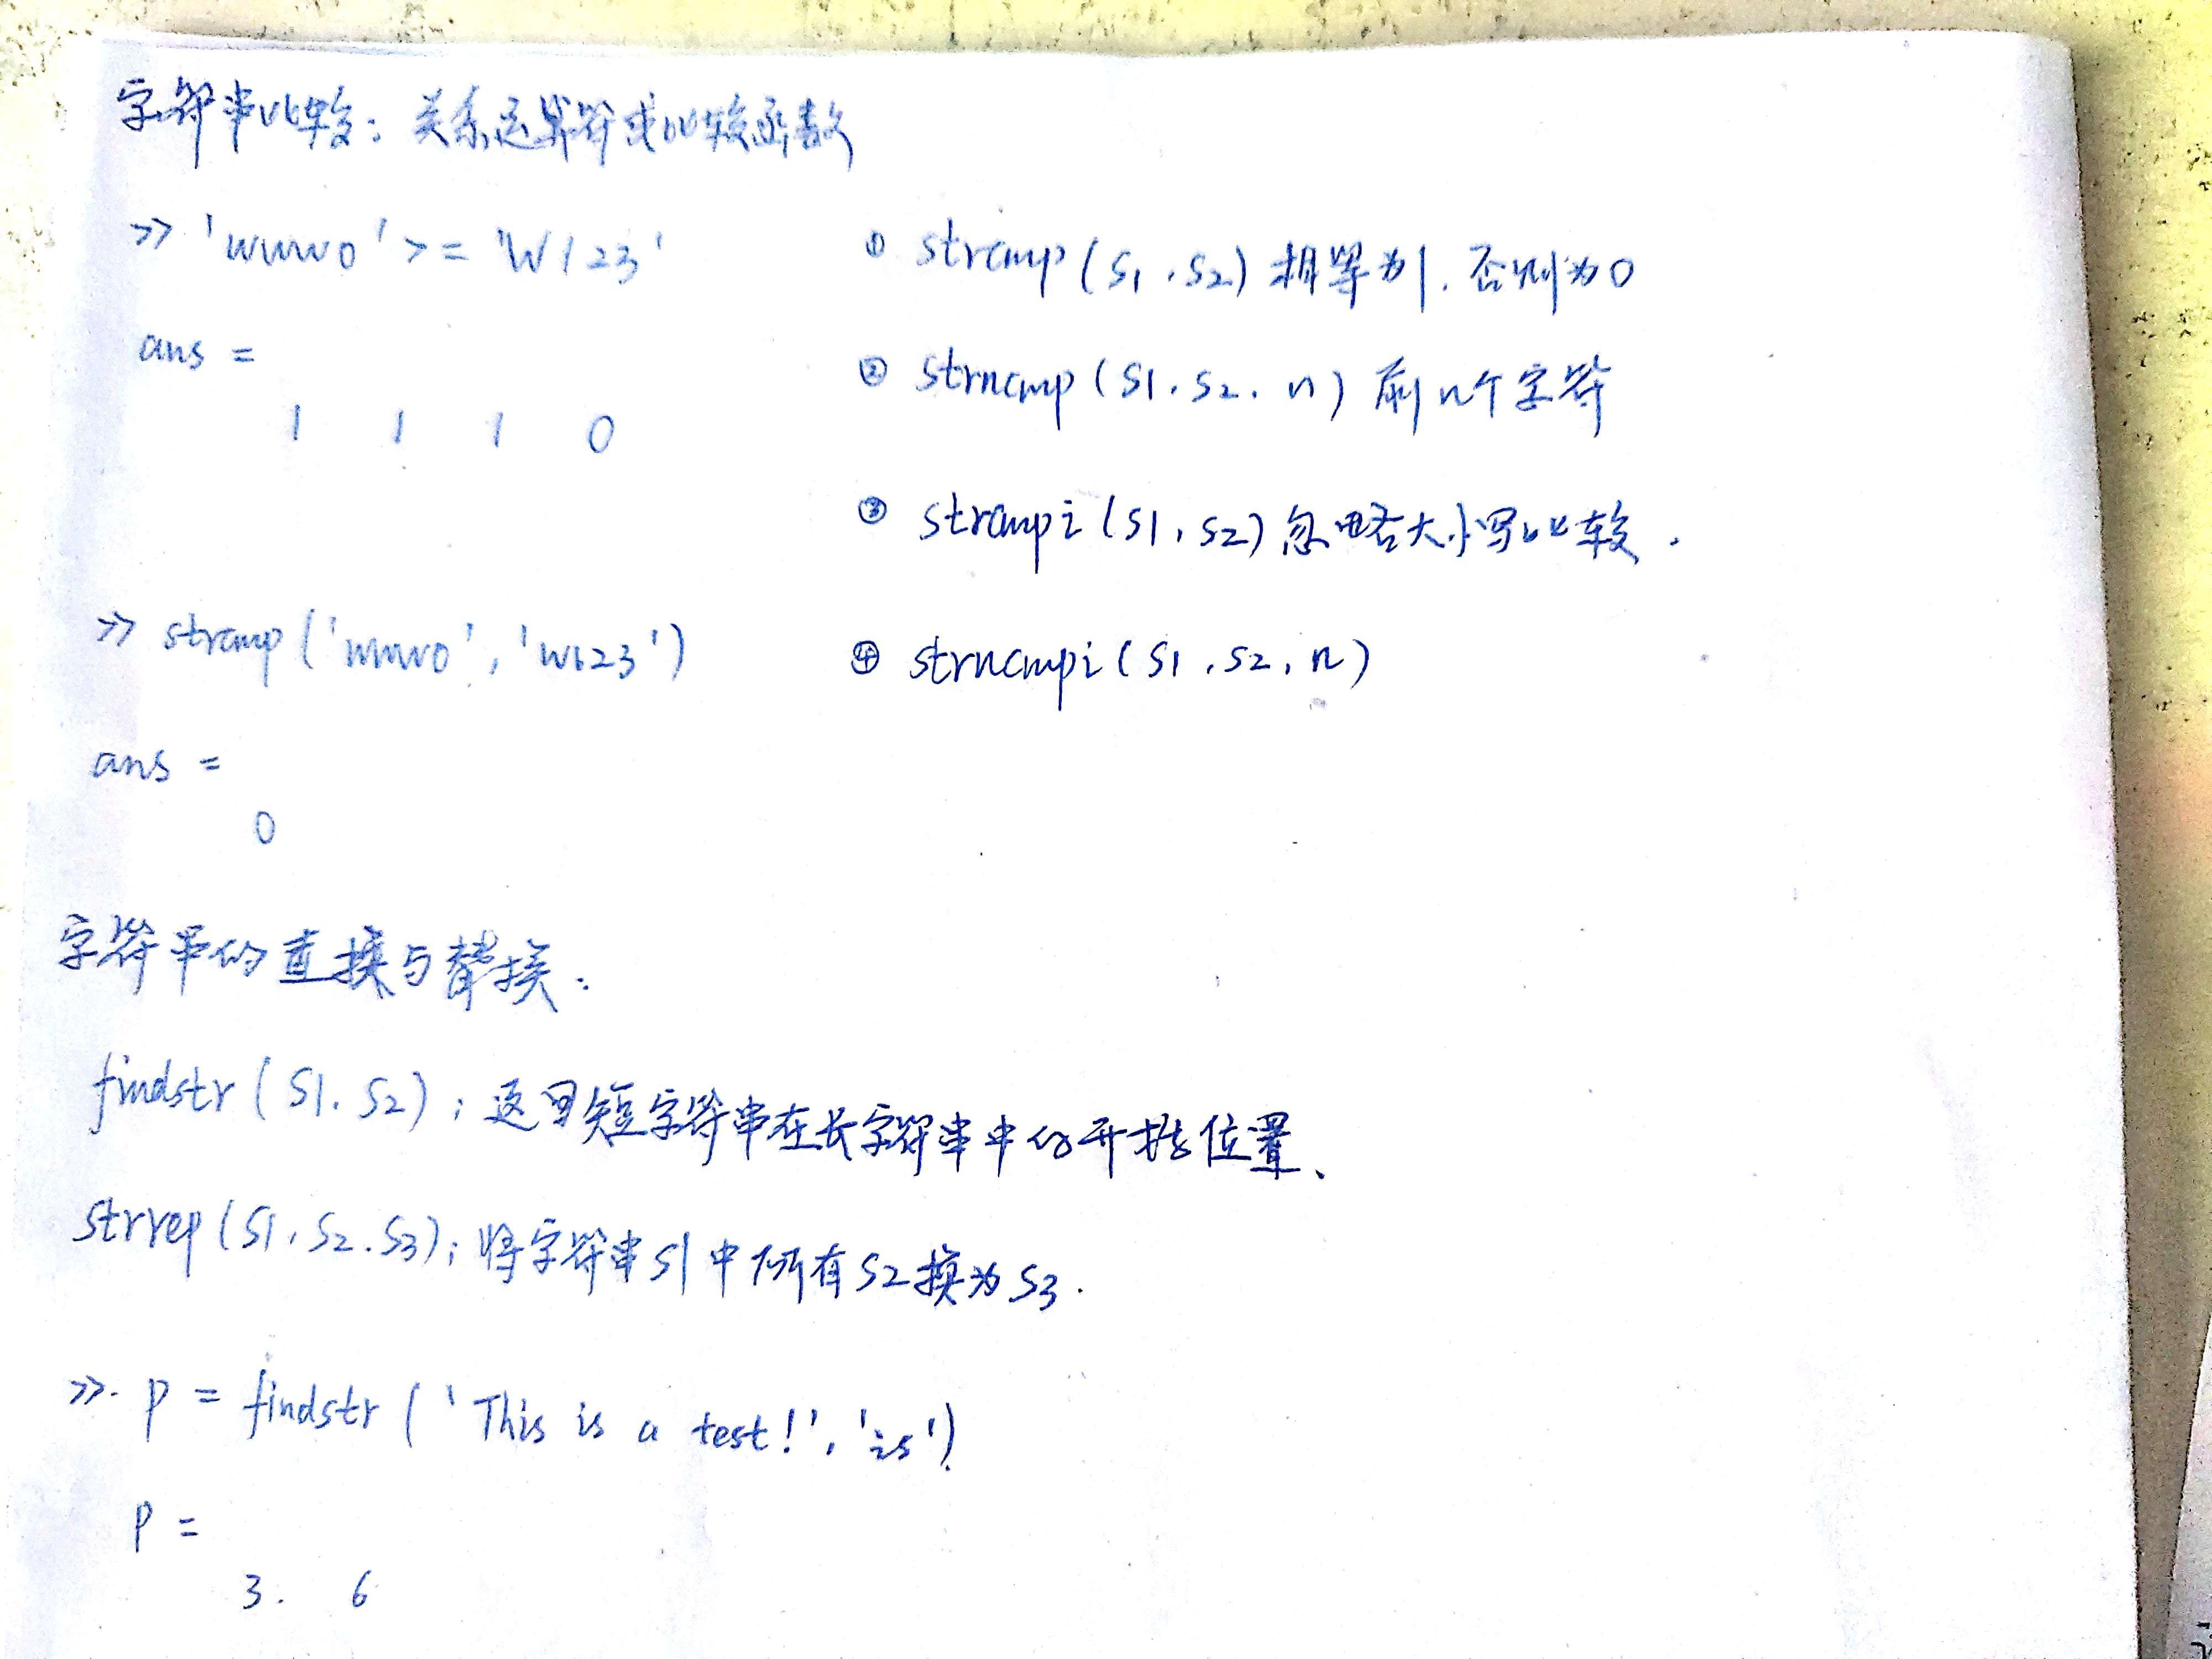 字符串比较：关系运算符或比较函数
>> 'www0' >= 'W123'
ans =
1 1 1 0
① strcmp(s1,s2) 相等为1,否则为0
② strncmp(s1,s2,n) 前n个字符
③ strcmpi(s1,s2) 忽略大小写比较.
>> strcmp('www0','w123')
④ strncmpi(s1,s2,n)
ans =
0
字符串的查换与替换：
findstr(s1,s2); 返回短字符串在长字符串中的开始位置、
strrep(s1,s2,s3); 将字符串s1中所有s2换为s3.
>> p = findstr('This is a test!','is')
p =
3. 6